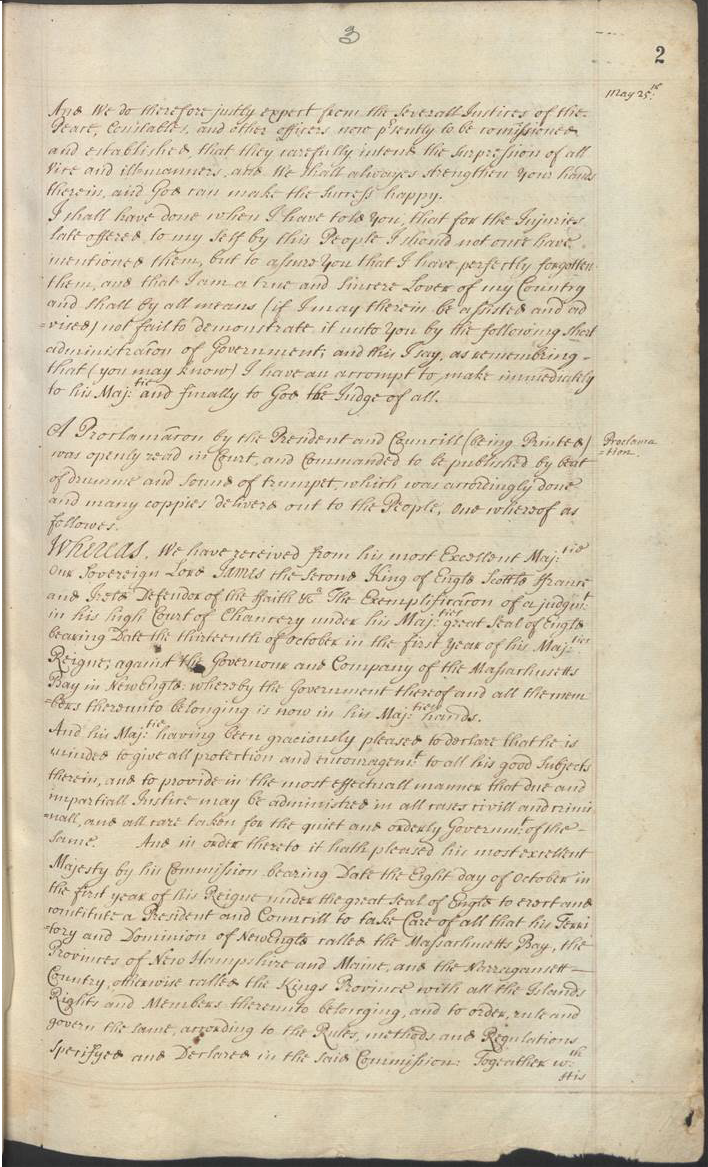 3
2
May 25.th
And We do therefore justly expect from the Severall Justices of the
Peace, Constables, and other officers now p'sently to be comissioned
and established, that they carefully intend the Surpression of all
Vice and illmanners, and We shall alwayes strengthen your hands
therein, and God can make the Success happy.
I shall have done when I have told You, that for the Injuries
late offered, to my Self by this People I should not once have
mentioned them, but to assure You that I have perfectly forgotten
them, and that I am a true and Sincere Lover of my Country
and shall by all means (if I may therein be assisted and ad
=vised) not fail to demonstrate it unto You by the following short
administracon of Government; and this I say, as remembring -
that (you may know) I have an accompt to make immediately
to his Maj:tie and finally to God the Judge of all.
A Proclamacon by the President and Councill (being Printed)
Proclama
=tion.
was openly read in Court, and Commanded to be published by beat
of drumme and sound of trumpet, which was accordingly done
and many coppies deliverd out to the People, one whereof as
followes.
Whereas, We have received from his most Excellent Maj:tie
Our Sovereign Lord James the Second King of Engld Scottld ffrance
and Ireld Defendor of the ffaith &ca The Exemplificacon of a judgmt
in his high Court of Chancery under his Maj:ties great Seal of Engld
bearing Date the thirteenth of October in the first Year of his Maj:ties
Reigne; against the Governour and Company of the Massachusetts
Bay in NewEngld: whereby the Government thereof and all the mem
=bers thereunto belonging is now in his Maj:ties hands.
And his Maj:tie having been graciously pleased to declare that he is
minded to give all protection and encouragemt to all his good Subjects
therein, and to provide in the most effectuall manner that due and
impartiall Justice may be administred in all cases civill and crimi
=nall, and all care taken for the quiet and orderly Governmt: of the -
same. And in order thereto it hath pleased his most excellent
Majesty by his Commission bearing Date the Eight day of October in
the first year of his Reigne under the great Seal of Engld to erect and
constitute a President and Councill to take Care of all that his Terri
=tory and Dominion of NewEngld called the Massachusetts Bay, the
Provinces of New Hampshire and Maine, and the Narragansett -
Country, otherwise called the Kings Province with all the Islands
Rights and Members thereunto belonging, and to order, rule and
govern the same, according to the Rules, methods and Regulations
Specifyed and Declared in the said Commission: Togeather wth
His